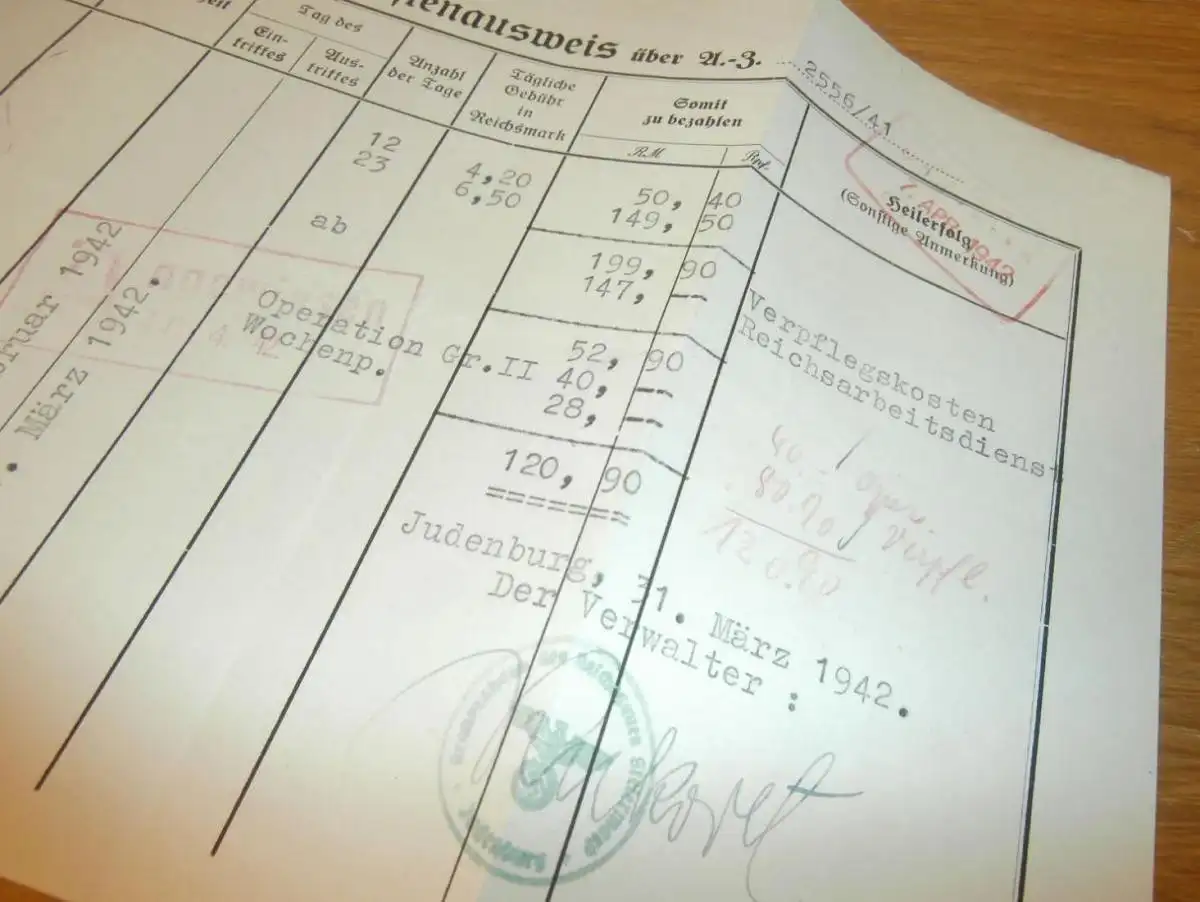 enausweis über A.-Z. 2556/41
Tag des
Ein-
trittes
Aus-
trittes
Anzahl
der Tage
Tägliche
Gebühr
in
Reichsmark
Somit
zu bezahlen
RM
Rpf.
Heilerfolg
(Sonstige Anmerkung)
7. APR. 1942
12 4,20 50, 40
23 6,50 149, 50
199, 90
ab 147, —
52, 90
Operation Gr.II 40, —
Wochenp. 28, —
120, 90
=======
bruar 1942
. März 1942.
Verpflegskosten
Reichsarbeitsdienst
40.-
80.90
120.90
Judenburg, 31. März 1942.
Der Verwalter :
Judenburg